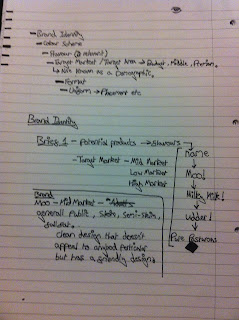 Brand Identity
- Colour Scheme
- Flavour (if relevant)
- Target Market / Target Area → Budget, Middle, Premium.
↳ Also known as a Demographic.
- Format
- Uniform → Placement etc
Brand Identity
Brief 1 - Potential products → Flavours
- Target Market - Mid Market
Low Market
High Market
Name
↓
Moo!
↓
Milky Milk!
↓
Udder!
↓
Pure
Brand
Moo - Mid Market -
general Public, Skets, Semi-Skim,
clean design that doesn't
appeal to anybod particular
but has a friendly design